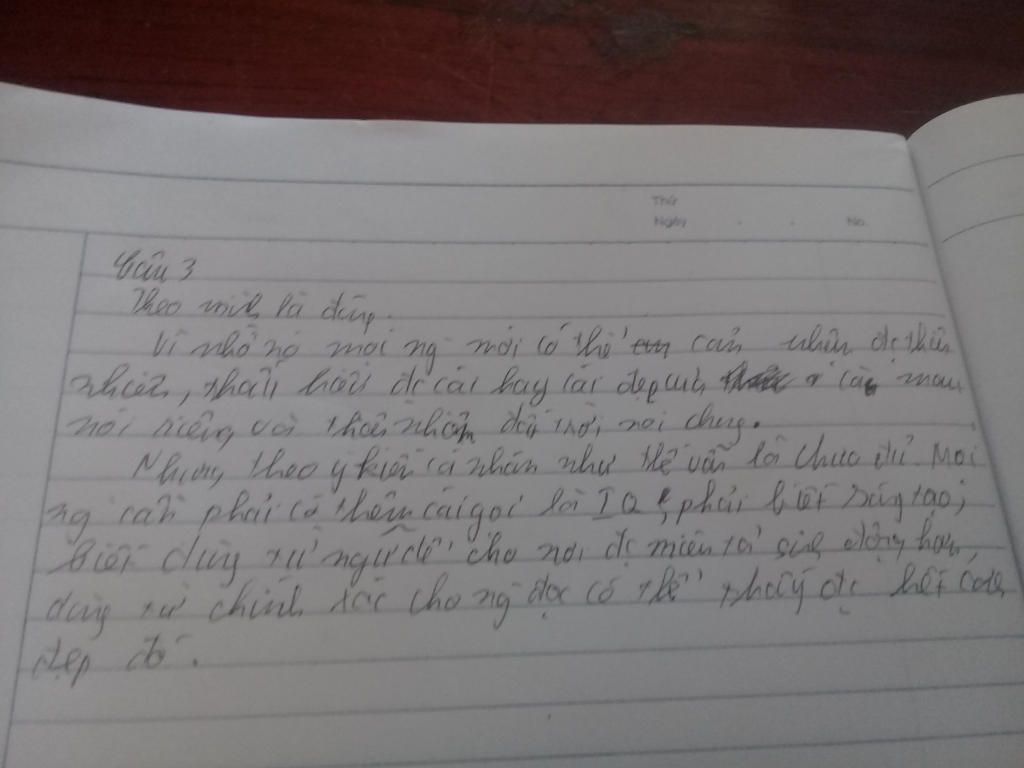 Thứ
Ngày . . No.
Câu 3
Theo mình là đúng.
Vì nhờ nó mọi ng mới có thể cản nhận đc thiên
nhiên, thấu hiểu đc cái hay cái đẹp của ở cà mau
nói riêng và thiên nhiên đất trời nói chung.
Nhưng theo ý kiến cá nhân như thế vẫn là chưa đủ. Mọi
ng cần phải có thêm cái gọi là IQ, phải biết sáng tạo,
biết dùng từ ngữ để cho nơi đc miêu tả sinh động hơn,
dùng từ chính xác cho ng đọc có thể thấy đc hết cảnh
đẹp đó.